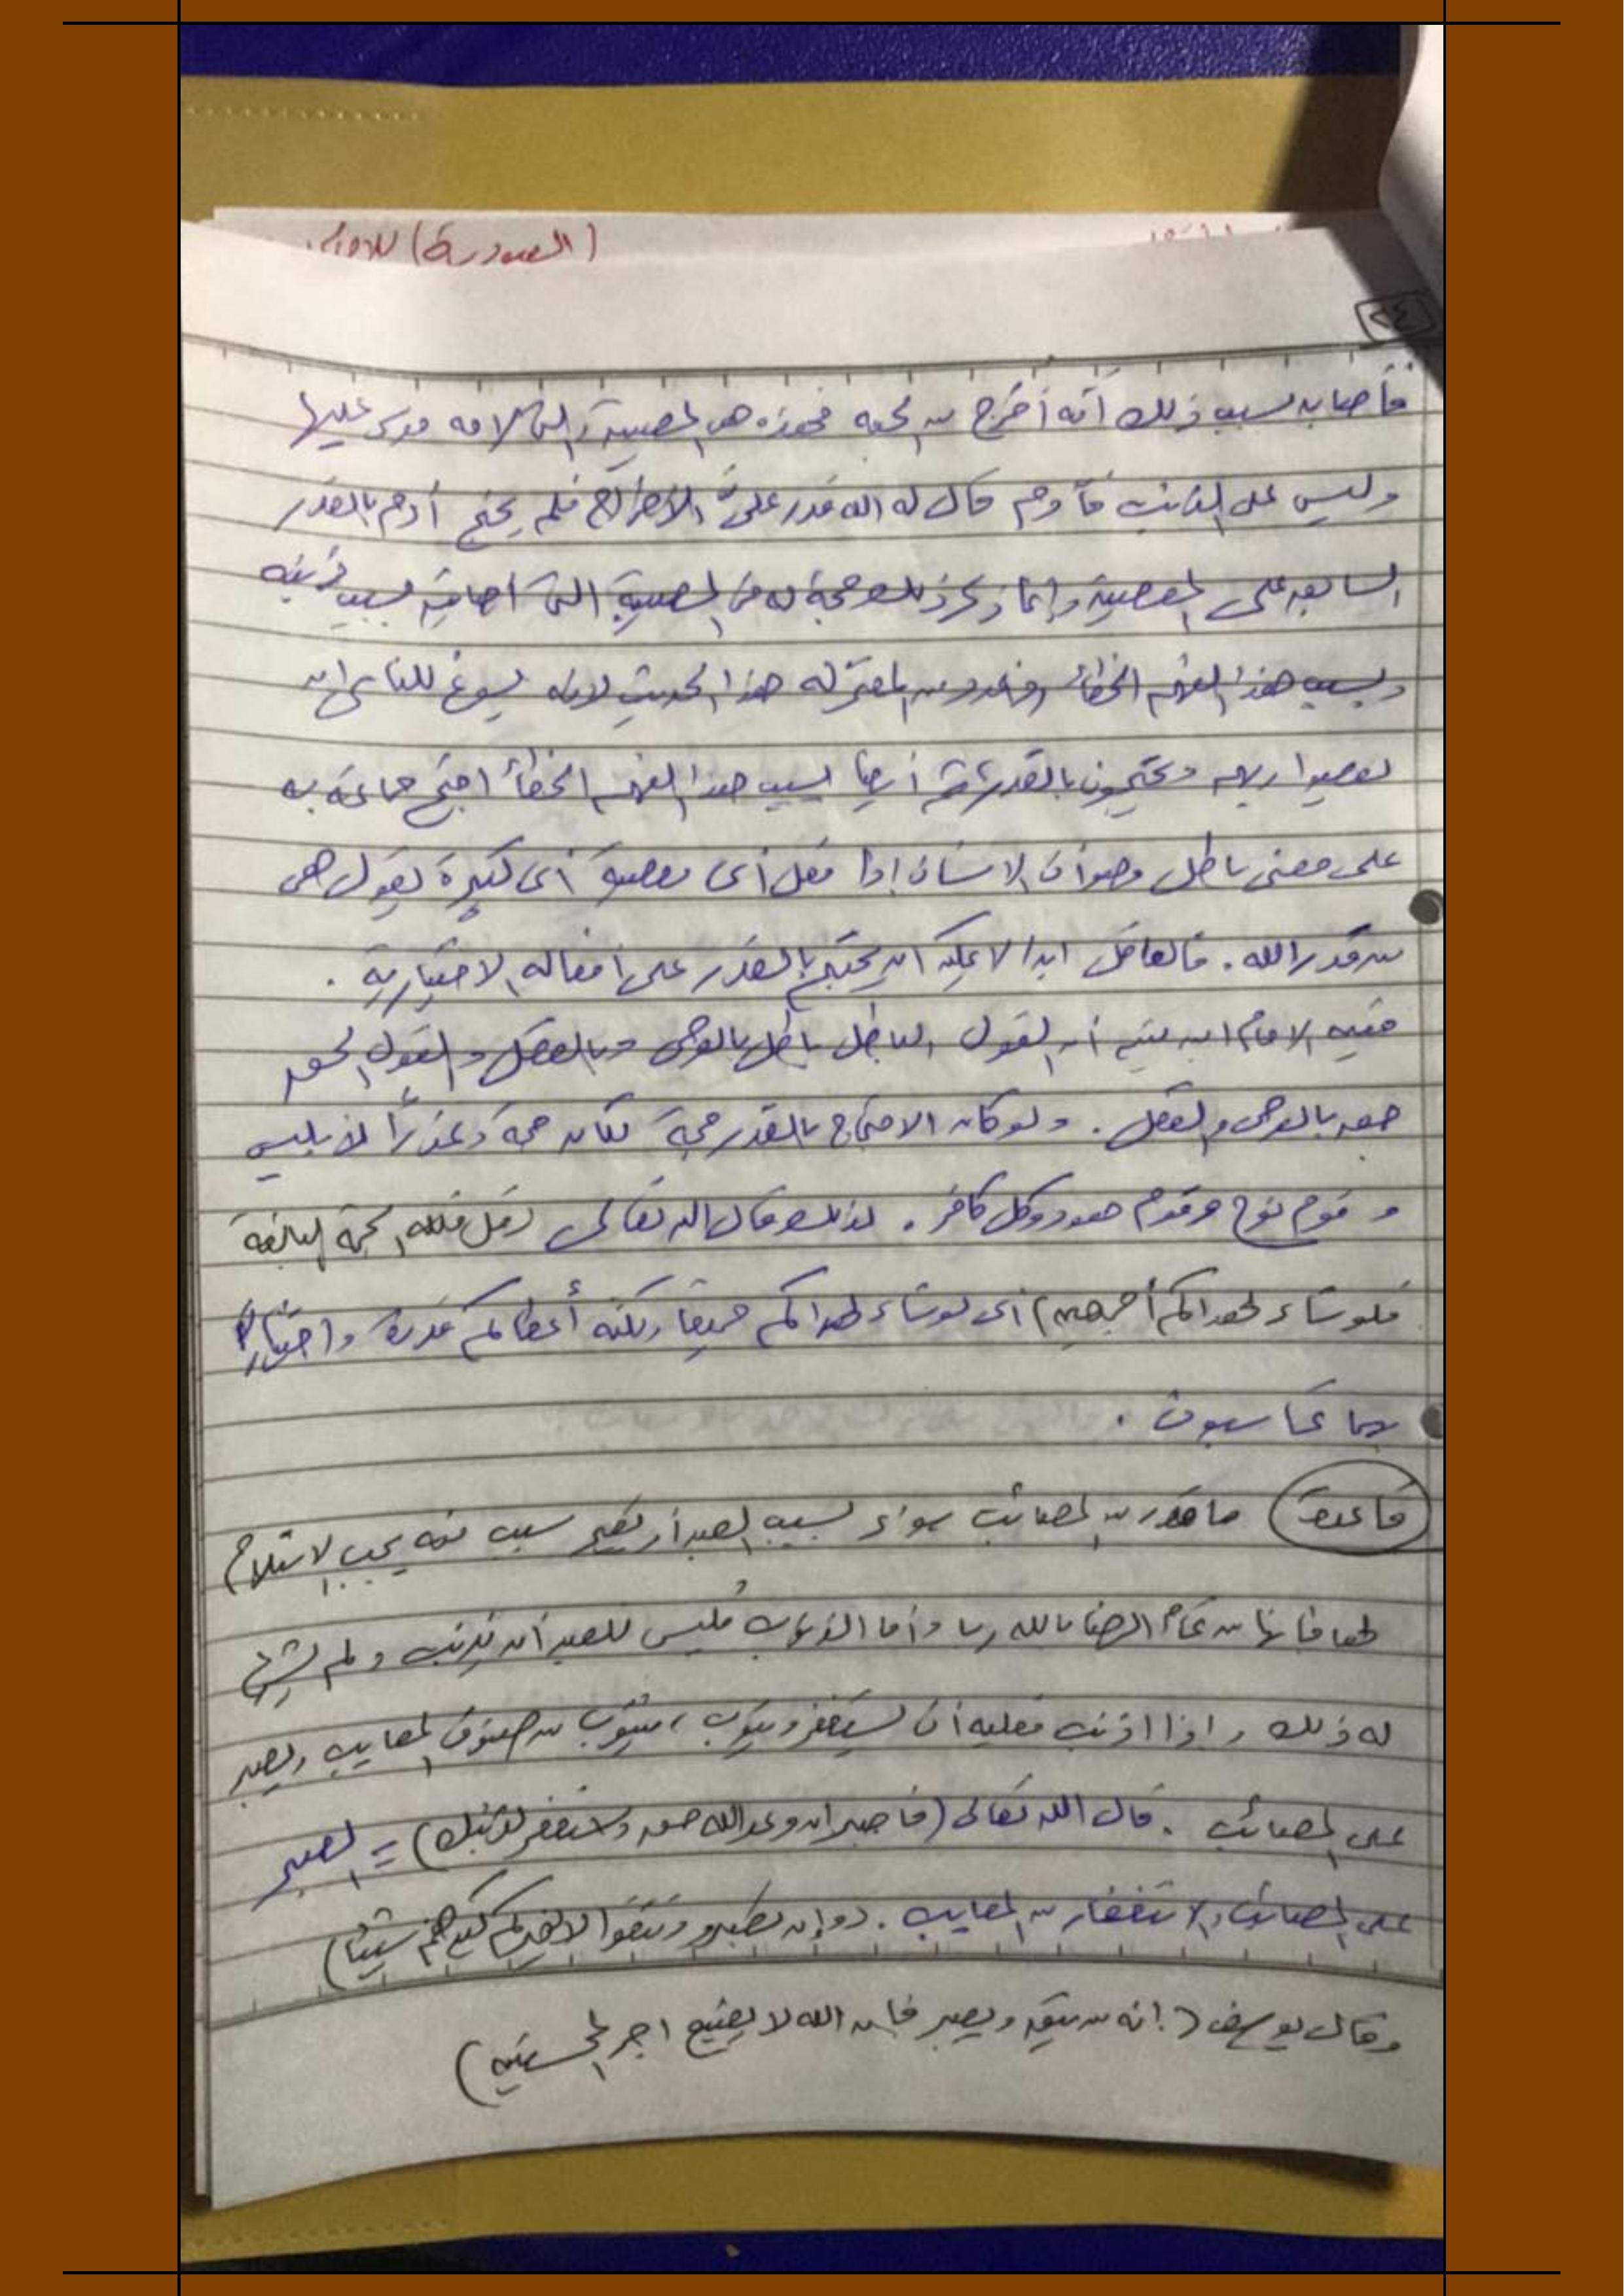 (العبودية) للامام
٢٤
فأصابه بسبب ذلك أنه أخرج من الجنه فهذه هى المصيبة التى لامه موسى عليها
وليس على الذنب فآدم قال له الله قدر علىَّ الإخراج فلم يحتج آدم بالقدر
السابق على المعصية وإنما ذكر ذلك حجة له فى المصيبة التى أصابته بسبب ذنبه
وبسبب هذا الفهم الخطأ المعتزله هذا الحديث لانه يسوغ للناس ان
يعصوا ربهم ويحتجون بالقدر ثم أيضا بسبب هذا الفهم الخطأ احتج جماعة به
على معنى باطل وهو أن الانسان إذا فعل أى معصية أى كبيرة يقول هى
من قدر الله . فالعاقل ابدا لا يمكن ان يحتج بالقدر على افعاله الاختيارية .
الامام ابن تيميه أن القول الباطل باطل بالوحى وبالعقل والقول الحق
حق بالوحى والعقل . ولو كان الاحتجاج بالقدر حجة لكان حجة وعذراً لابليس
و قوم نوح وقوم هود وكل كافر . لذلك قال الله تعالى (قل فلله الحجة البالغة
فلو شاء لهداكم أجمعين) أى لو شاء لهداكم جميعا ولكنه أعطاكم قدرة واختياراً
بهما تحاسبون .
قاعدة ما قدر من المصائب سواء بسبب العبد أو بغير سبب منه يجب الاستلام
لها فإنها من تمام الرضا بالله ربا وأما الذنوب فليس للعبد أن يذنب ولم يشرع
له ذلك واذا اذنب فعليه أن يستغفر ويتوب ، فيتوب من صنوف المعايب ويصبر
على المصائب . قال الله تعالى (فاصبر ان وعد الله حق واستغفر لذنبك) = الصبر
على المصائب والاستغفار من المعايب . (وإن تصبروا وتتقوا لا يضركم كيدهم شيئا)
وقال يوسف (انه من يتق ويصبر فإن الله لا يضيع اجر المحسنين)